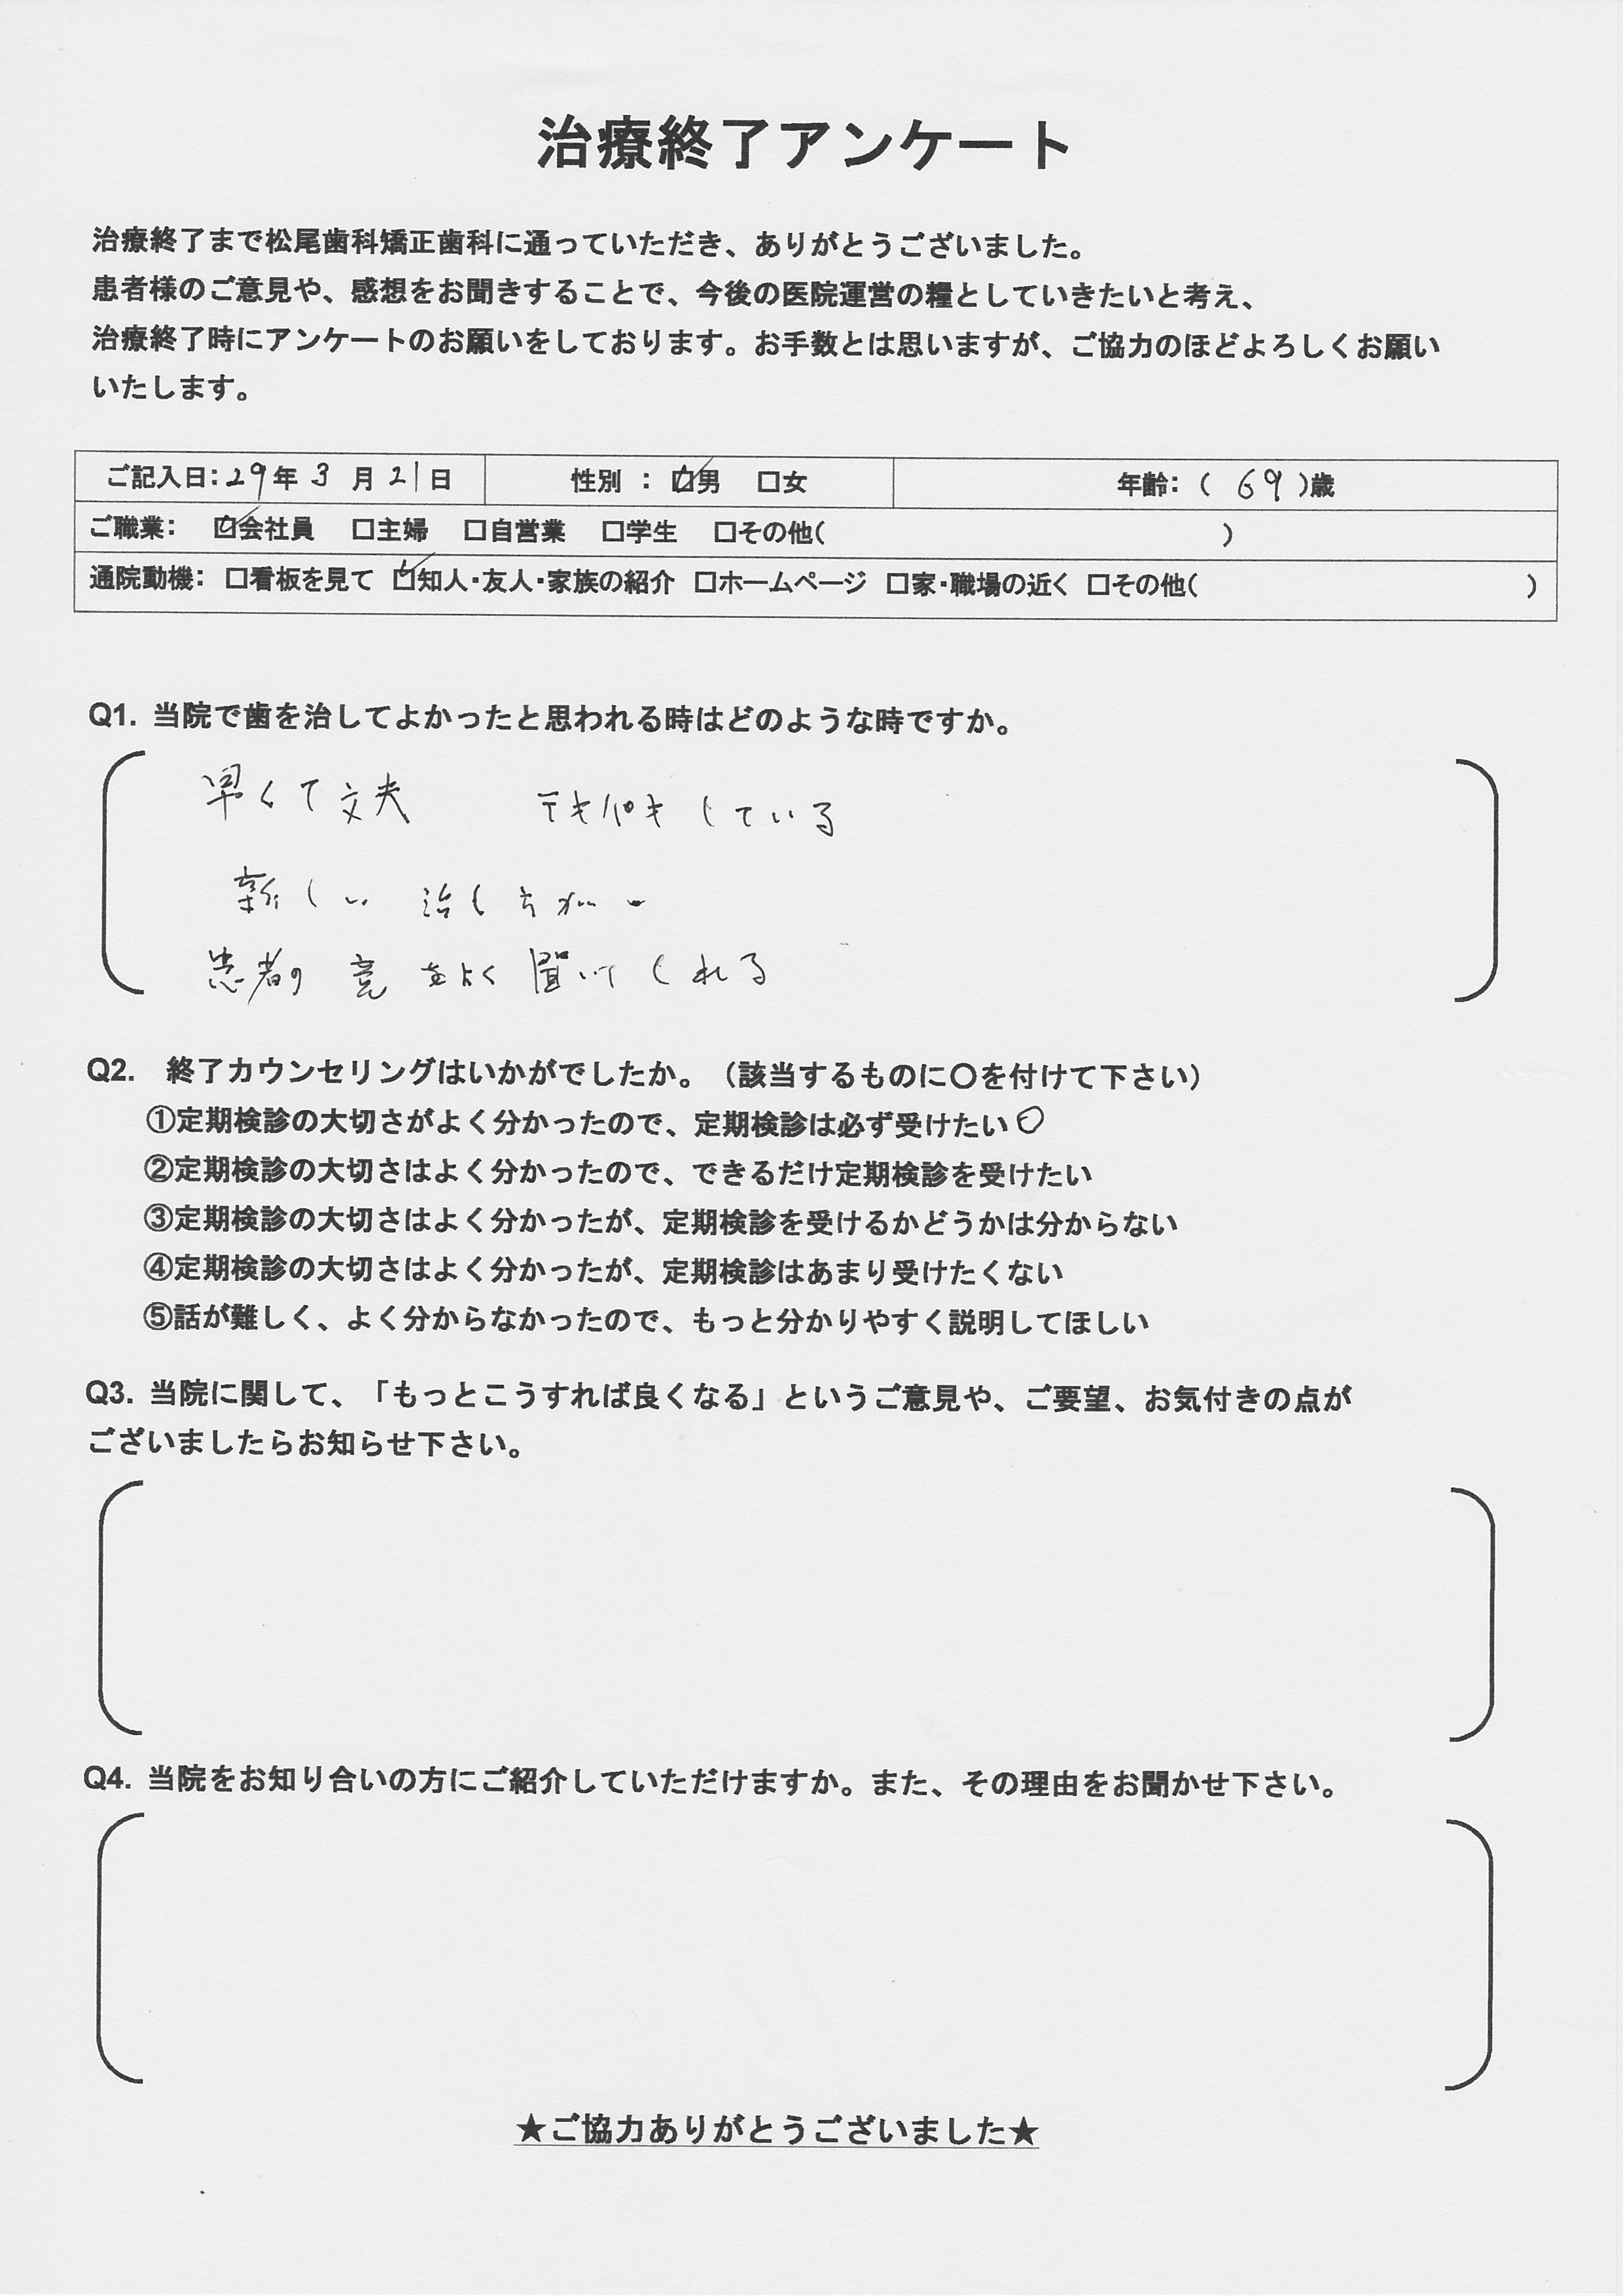 治療終了アンケート
治療終了まで松尾歯科矯正歯科に通っていただき、ありがとうございました。
患者様のご意見や、感想をお聞きすることで、今後の医院運営の糧としていきたいと考え、
治療終了時にアンケートのお願いをしております。お手数とは思いますが、ご協力のほどよろしくお願い
いたします。
ご記入日：29年 3 月 21日 性別 ： ☑男 □女 年齢：（ 69 ）歳
ご職業： ☑会社員 □主婦 □自営業 □学生 □その他（ ）
通院動機： □看板を見て ☑知人・友人・家族の紹介 □ホームページ □家・職場の近く □その他（ ）
Q1. 当院で歯を治してよかったと思われる時はどのような時ですか。
早くて丈夫 テキパキしている
新しい 治し方が
患者の 意 をよく 聞いてくれる
Q2. 終了カウンセリングはいかがでしたか。（該当するものに〇を付けて下さい）
①定期検診の大切さがよく分かったので、定期検診は必ず受けたい 〇
②定期検診の大切さはよく分かったので、できるだけ定期検診を受けたい
③定期検診の大切さはよく分かったが、定期検診を受けるかどうかは分からない
④定期検診の大切さはよく分かったが、定期検診はあまり受けたくない
⑤話が難しく、よく分からなかったので、もっと分かりやすく説明してほしい
Q3. 当院に関して、「もっとこうすれば良くなる」というご意見や、ご要望、お気付きの点が
ございましたらお知らせ下さい。
Q4. 当院をお知り合いの方にご紹介していただけますか。また、その理由をお聞かせ下さい。
★ご協力ありがとうございました★